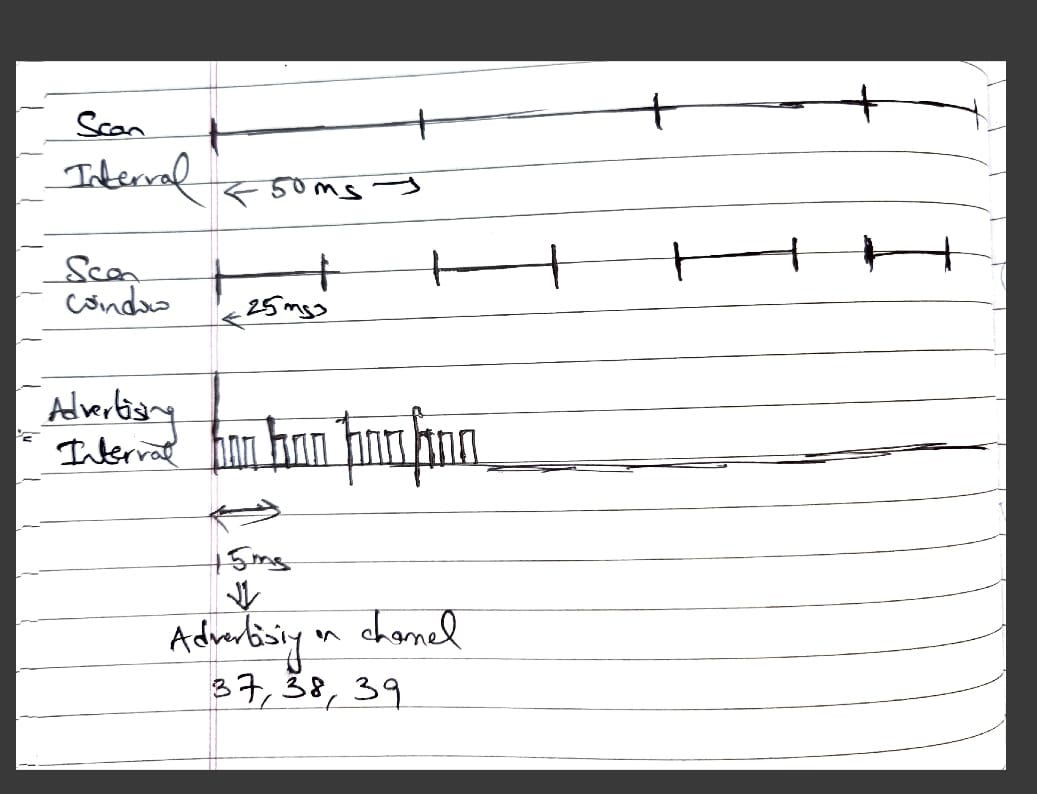 Scan
Interval
← 50 ms →
Scan
window
← 25 ms →
Advertising
Interval
15ms
⇓
Advertising on channel
37, 38, 39